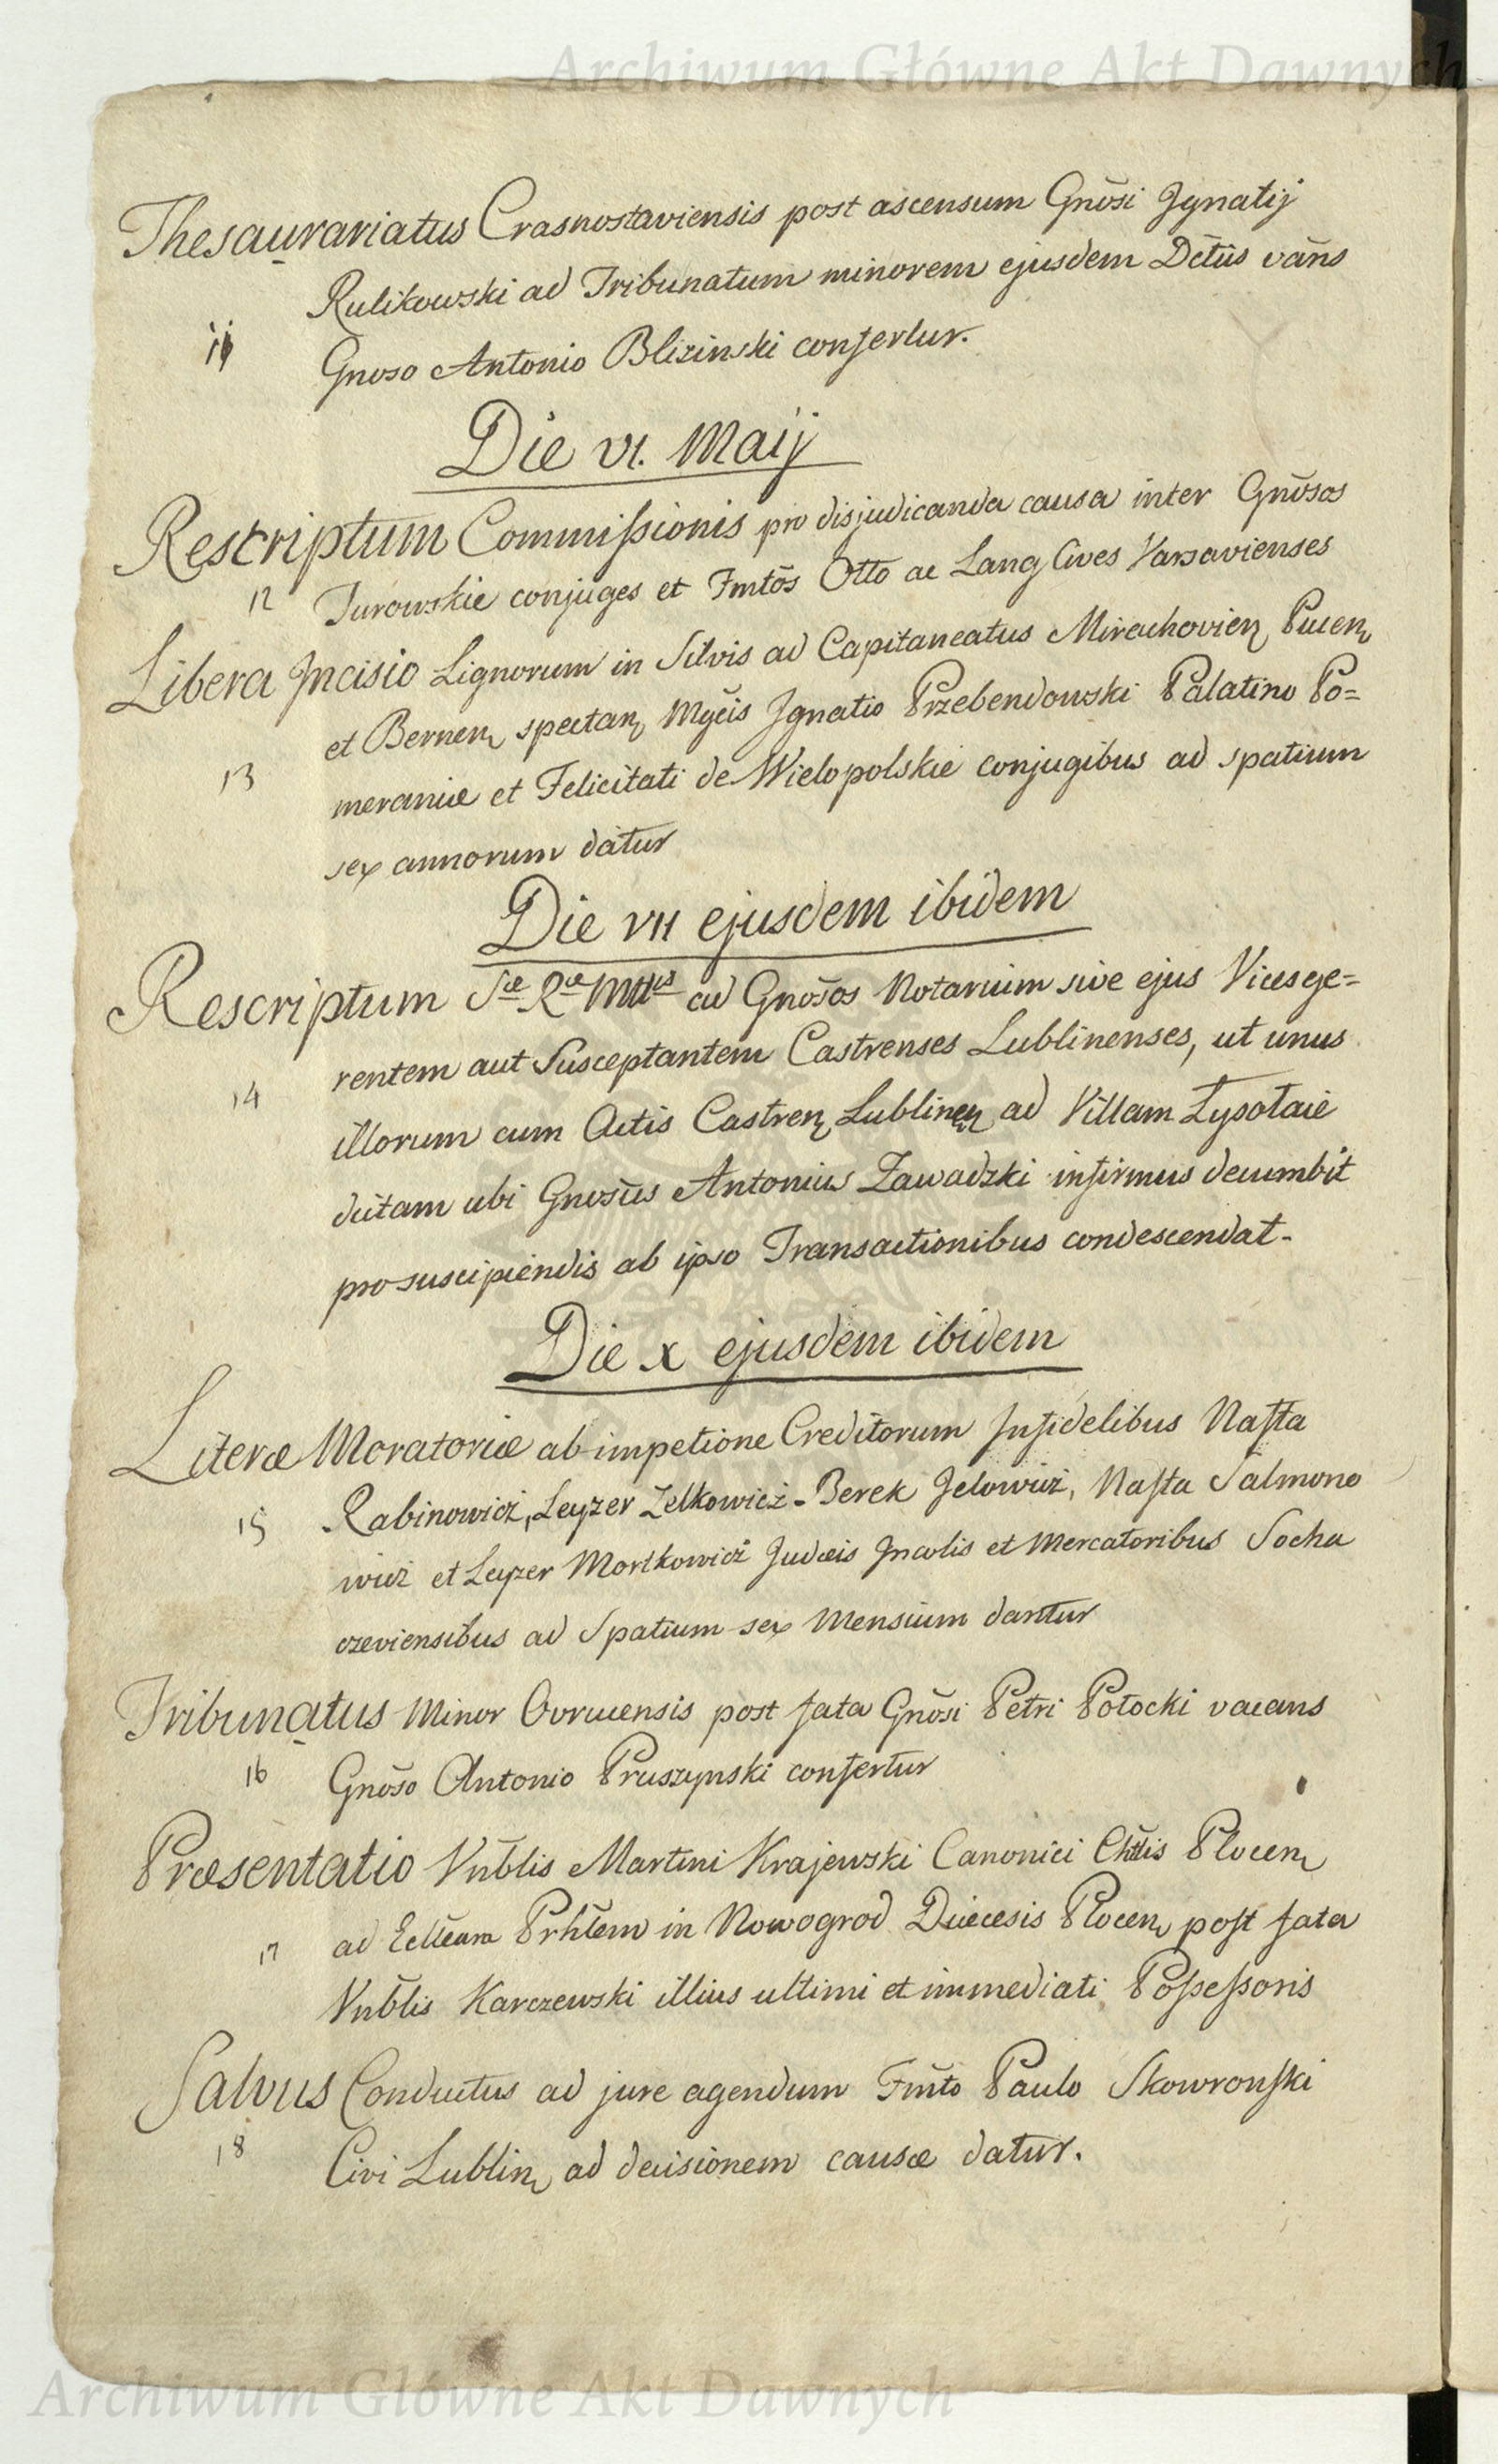 Archiwum Główne Akt Dawnych
Thesaurariatus Crasnostaviensis post ascensum Gnōsi Jgnatij
Rulikowski ad Tribunatum minorem ejusdem Dētūs vāns
11 Gnoso Antonio Blizinski confertur.
Die VI. Maij
Rescriptum Commissionis pro disjudicanda causa inter Gnōsos
12 Jurowskie conjuges et Fmtōs Otto ac Lang Cives Varsavienses
Libera Jncisio Lignorum in Silvis ad Capitaneatus Mirachovien Pucen
et Bernen spectan Mgcis Jgnatio Przebendowski Palatino Po=
13 meraniæ et Felicitati de Wielopolskie conjugibus ad spatium
sex annorum datur
Die VII ejusdem ibidem
Rescriptum Sæ Ræ Mttis ad Gnōsos Notarium sive ejus Vicesge=
14 rentem aut Susceptantem Castrenses Lublinenses, ut unus
illorum cum Actis Castren Lublinen ad Villam Łysołaie
dictam ubi Gnosūs Antonius Zawadzki infirmus decumbit
pro suscipiendis ab ipso Transactionibus condescendat.
Die X ejusdem ibidem
Literæ Moratoriæ ab impetione Creditorum Jnfidelibus Nafta
15 Rabinowicz, Leyzer Zelkowicz. Berek Jelowicz, Nafta Salmono
wicz et Leyzer Mortkowicz Judæis Jncolis et Mercatoribus Socha
czeviensibus ad Spatium sex Mensium dantur
Tribunatus Minor Ovrucensis post fata Gnōsi Petri Potocki vacans
16 Gnōso Antonio Pruszynski confertur
Præsentatio Vnblis Martini Krajewski Canonici Chtlis Plocen
17 ad Ecclēam Prhlem in Nowogrod Diæcesis Plocen post fata
Vnblis Karczewski illius ultimi et immediati Possessoris
Salvus Conductus ad jure agendum Fmto Paulo Skowronski
18 Civi Lublin ad decisionem causæ datur.
Archiwum Główne Akt Dawnych